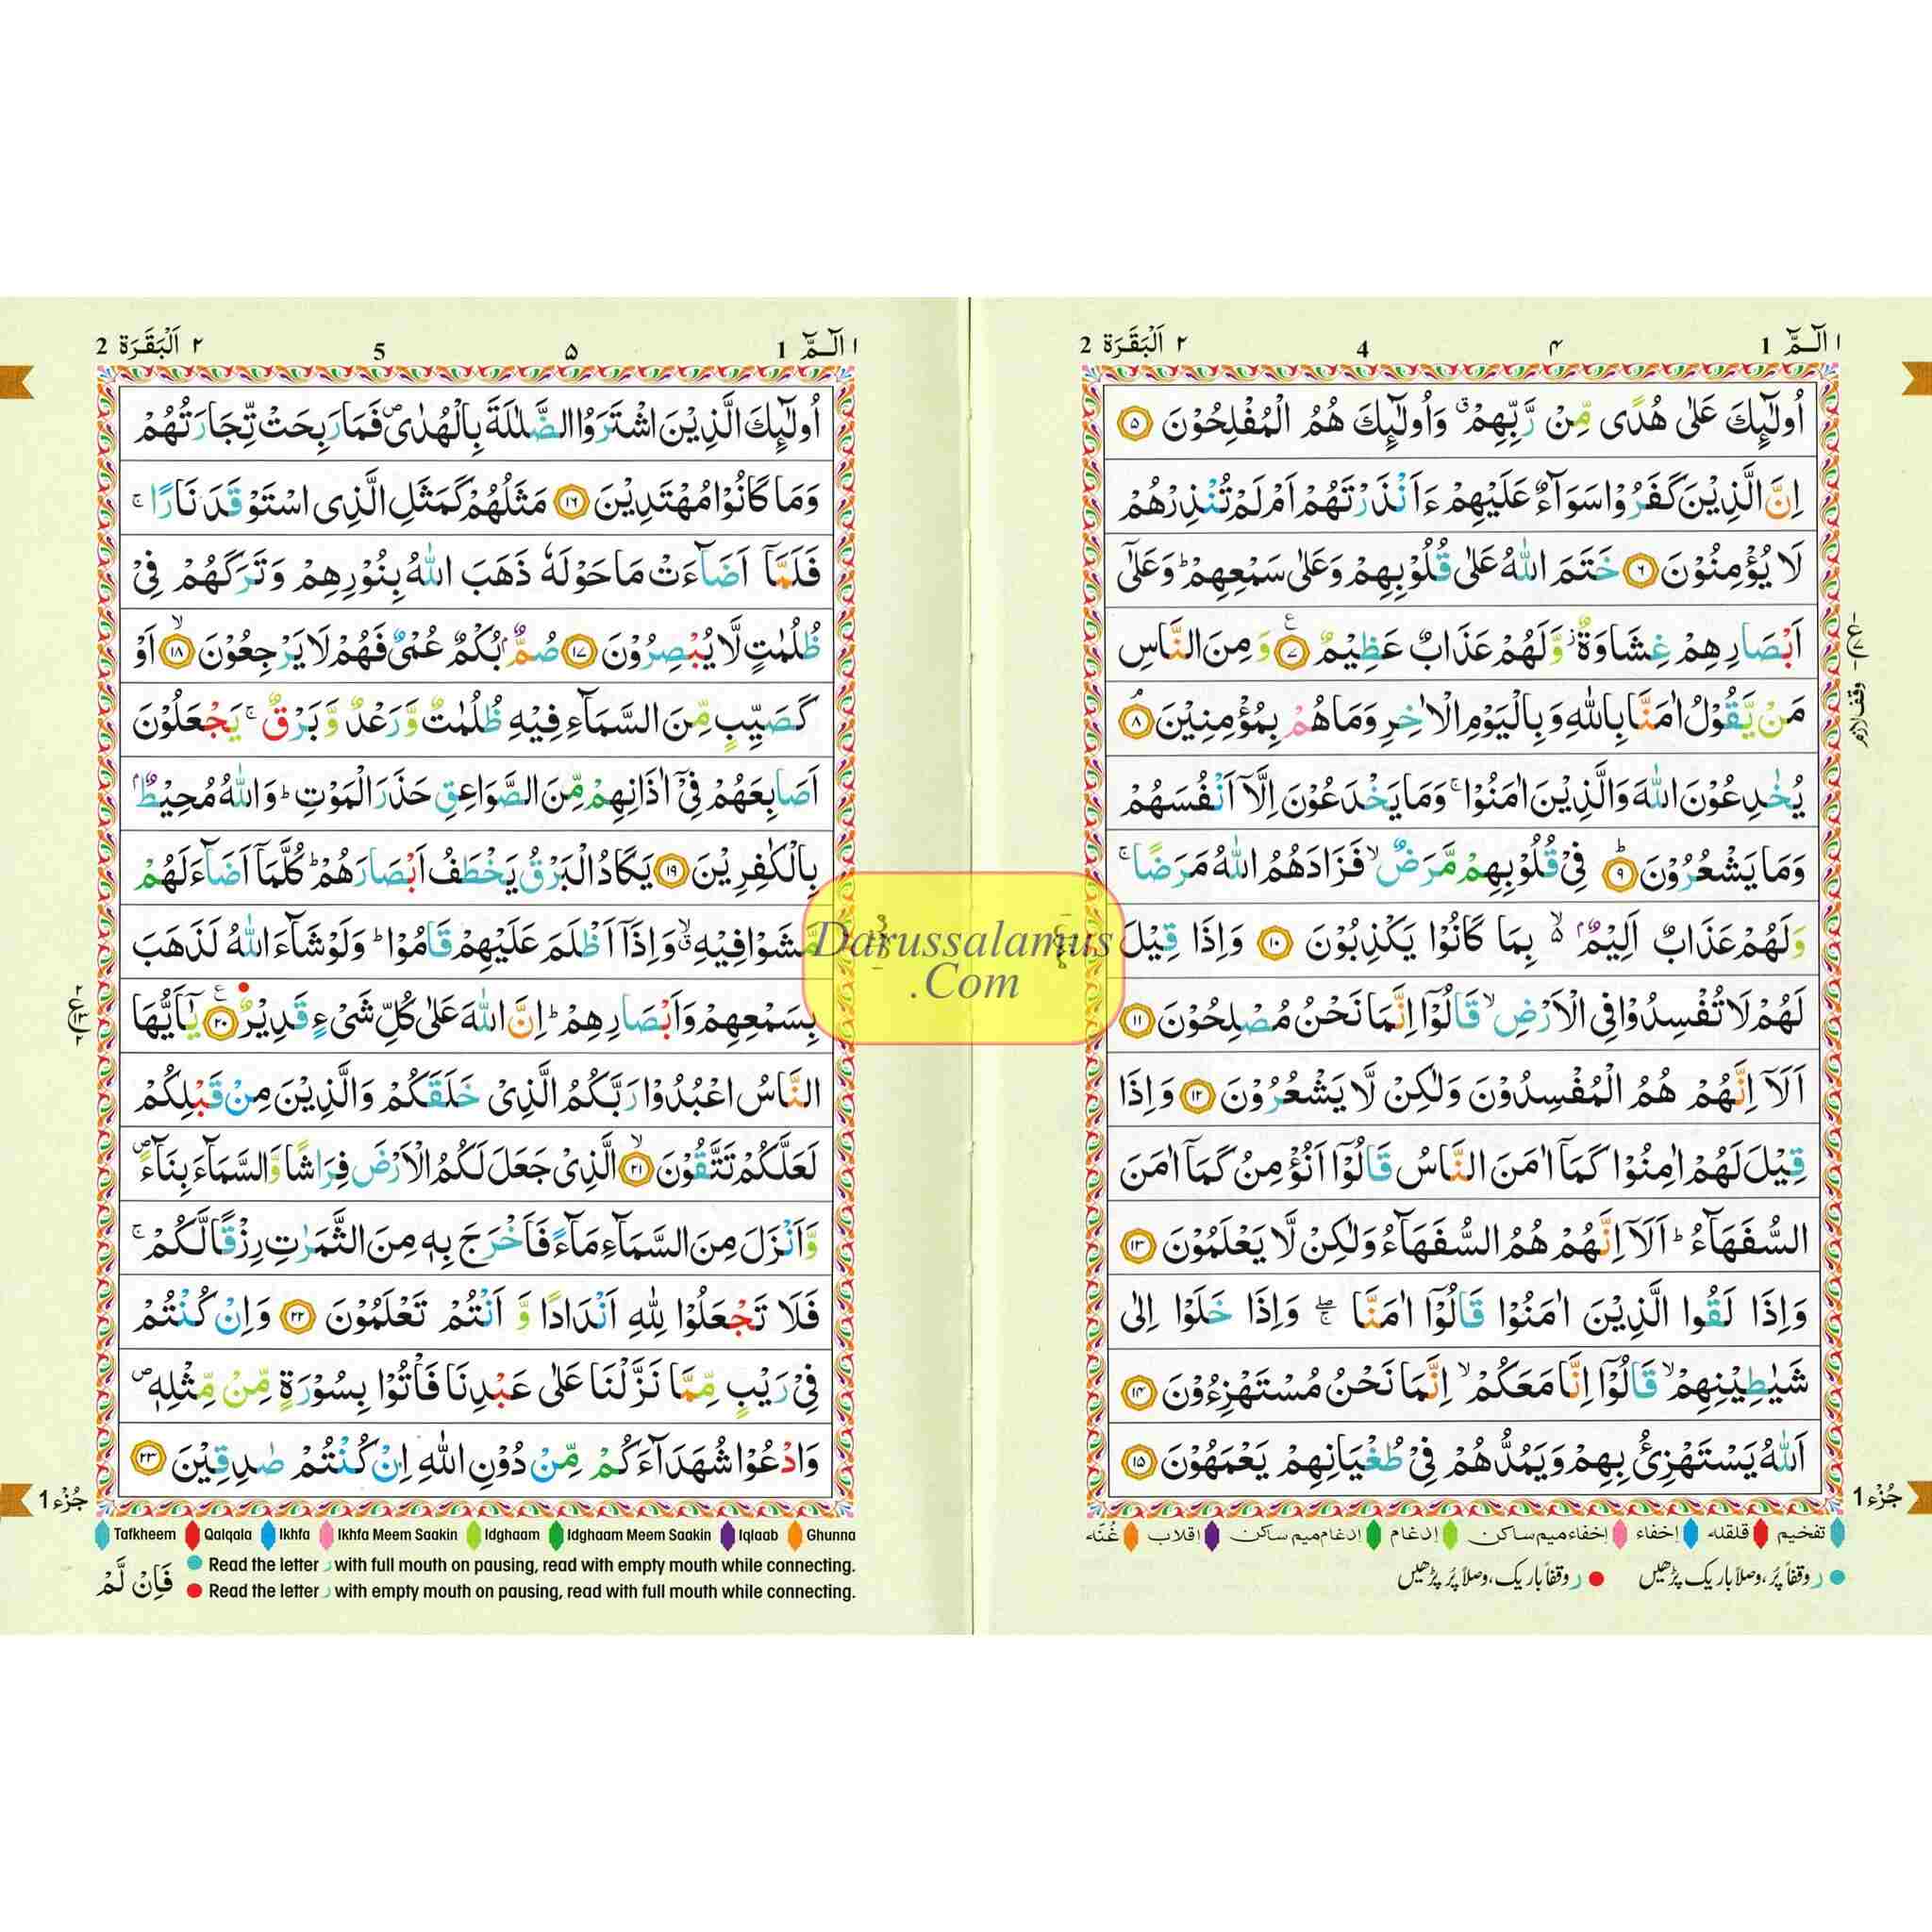 ا الٓـمّٓ 1
۴
4
٢ اَلْبَقَرَة 2
اُولٰٓئِكَ عَلٰى هُدًى مِّنْ رَّبِّهِمْ ۗ وَاُولٰٓئِكَ هُمُ الْمُفْلِحُوْنَ ۵
اِنَّ الَّذِيْنَ كَفَرُوْا سَوَآءٌ عَلَيْهِمْ ءَاَنْذَرْتَهُمْ اَمْ لَمْ تُنْذِرْهُمْ
لَا يُؤْمِنُوْنَ ۶ خَتَمَ اللّٰهُ عَلٰى قُلُوْبِهِمْ وَعَلٰى سَمْعِهِمْ ؕ وَعَلٰٓى
اَبْصَارِهِمْ غِشَاوَةٌ ؗ وَّلَهُمْ عَذَابٌ عَظِيْمٌ ۷ وَمِنَ النَّاسِ
مَنْ يَّقُوْلُ اٰمَنَّا بِاللّٰهِ وَبِالْيَوْمِ الْاٰخِرِ وَمَا هُمْ بِمُؤْمِنِيْنَ ۘ ۸
يُخٰدِعُوْنَ اللّٰهَ وَالَّذِيْنَ اٰمَنُوْا ۚ وَمَا يَخْدَعُوْنَ اِلَّآ اَنْفُسَهُمْ
وَمَا يَشْعُرُوْنَ ؕ ۹ فِيْ قُلُوْبِهِمْ مَّرَضٌ ۙ فَزَادَهُمُ اللّٰهُ مَرَضًا ۚ
وَلَهُمْ عَذَابٌ اَلِيْمٌۢ ۙ۬ بِمَا كَانُوْا يَكْذِبُوْنَ ۱۰ وَاِذَا قِيْلَ
لَهُمْ لَا تُفْسِدُوْا فِي الْاَرْضِ ۙ قَالُوْٓا اِنَّمَا نَحْنُ مُصْلِحُوْنَ ۱۱
اَلَآ اِنَّهُمْ هُمُ الْمُفْسِدُوْنَ وَلٰكِنْ لَّا يَشْعُرُوْنَ ۱۲ وَاِذَا
قِيْلَ لَهُمْ اٰمِنُوْا كَمَآ اٰمَنَ النَّاسُ قَالُوْٓا اَنُؤْمِنُ كَمَآ اٰمَنَ
السُّفَهَآءُ ؕ اَلَآ اِنَّهُمْ هُمُ السُّفَهَآءُ وَلٰكِنْ لَّا يَعْلَمُوْنَ ۱۳
وَاِذَا لَقُوا الَّذِيْنَ اٰمَنُوْا قَالُوْٓا اٰمَنَّا ۖۚ وَاِذَا خَلَوْا اِلٰى
شَيٰطِيْنِهِمْ ۙ قَالُوْٓا اِنَّا مَعَكُمْ ۙ اِنَّمَا نَحْنُ مُسْتَهْزِءُوْنَ ۱۴
اَللّٰهُ يَسْتَهْزِئُ بِهِمْ وَيَمُدُّهُمْ فِيْ طُغْيَانِهِمْ يَعْمَهُوْنَ ۱۵
وقف لازم
جُزْء 1
تفخیم قلقلہ إخفاء إخفاء میم ساکن إدغام إدغام میم ساکن إقلاب غُنّہ
ر وقفاً پُر، وصلاً باریک پڑھیں ر وقفاً باریک، وصلاً پُر پڑھیں
ا الٓـمّٓ 1
۵
5
٢ اَلْبَقَرَة 2
اُولٰٓئِكَ الَّذِيْنَ اشْتَرَوُا الضَّلٰلَةَ بِالْهُدٰى ۪ فَمَا رَبِحَتْ تِّجَارَتُهُمْ
وَمَا كَانُوْا مُهْتَدِيْنَ ۱۶ مَثَلُهُمْ كَمَثَلِ الَّذِى اسْتَوْقَدَ نَارًا ۚ
فَلَمَّآ اَضَآءَتْ مَا حَوْلَهٗ ذَهَبَ اللّٰهُ بِنُوْرِهِمْ وَتَرَكَهُمْ فِيْ
ظُلُمٰتٍ لَّا يُبْصِرُوْنَ ۱۷ صُمٌّۢ بُكْمٌ عُمْيٌ فَهُمْ لَا يَرْجِعُوْنَ ۙ ۱۸ اَوْ
كَصَيِّبٍ مِّنَ السَّمَآءِ فِيْهِ ظُلُمٰتٌ وَّرَعْدٌ وَّبَرْقٌ ۚ يَجْعَلُوْنَ
اَصَابِعَهُمْ فِيْٓ اٰذَانِهِمْ مِّنَ الصَّوَاعِقِ حَذَرَ الْمَوْتِ ؕ وَاللّٰهُ مُحِيْطٌۢ
بِالْكٰفِرِيْنَ ۱۹ يَكَادُ الْبَرْقُ يَخْطَفُ اَبْصَارَهُمْ ؕ كُلَّمَآ اَضَآءَ لَهُمْ
مَّشَوْا فِيْهِ ۙۗ وَاِذَآ اَظْلَمَ عَلَيْهِمْ قَامُوْا ؕ وَلَوْ شَآءَ اللّٰهُ لَذَهَبَ
بِسَمْعِهِمْ وَاَبْصَارِهِمْ ؕ اِنَّ اللّٰهَ عَلٰى كُلِّ شَيْءٍ قَدِيْرٌ ۲۰ يٰٓاَيُّهَا
النَّاسُ اعْبُدُوْا رَبَّكُمُ الَّذِيْ خَلَقَكُمْ وَالَّذِيْنَ مِنْ قَبْلِكُمْ
لَعَلَّكُمْ تَتَّقُوْنَ ۙ ۲۱ الَّذِيْ جَعَلَ لَكُمُ الْاَرْضَ فِرَاشًا وَّالسَّمَآءَ بِنَآءً ۪
وَّاَنْزَلَ مِنَ السَّمَآءِ مَآءً فَاَخْرَجَ بِهٖ مِنَ الثَّمَرٰتِ رِزْقًا لَّكُمْ ۚ
فَلَا تَجْعَلُوْا لِلّٰهِ اَنْدَادًا وَّاَنْتُمْ تَعْلَمُوْنَ ۲۲ وَاِنْ كُنْتُمْ
فِيْ رَيْبٍ مِّمَّا نَزَّلْنَا عَلٰى عَبْدِنَا فَاْتُوْا بِسُوْرَةٍ مِّنْ مِّثْلِهٖ ۪
وَادْعُوْا شُهَدَآءَكُمْ مِّنْ دُوْنِ اللّٰهِ اِنْ كُنْتُمْ صٰدِقِيْنَ ۲۳
جُزْء 1
Tafkheem Qalqala Ikhfa Ikhfa Meem Saakin Idghaam Idghaam Meem Saakin Iqlaab Ghunna
Read the letter ر with full mouth on pausing, read with empty mouth while connecting.
Read the letter ر with empty mouth on pausing, read with full mouth while connecting.
فَاِنْ لَّمْ
Darussalamus
.Com